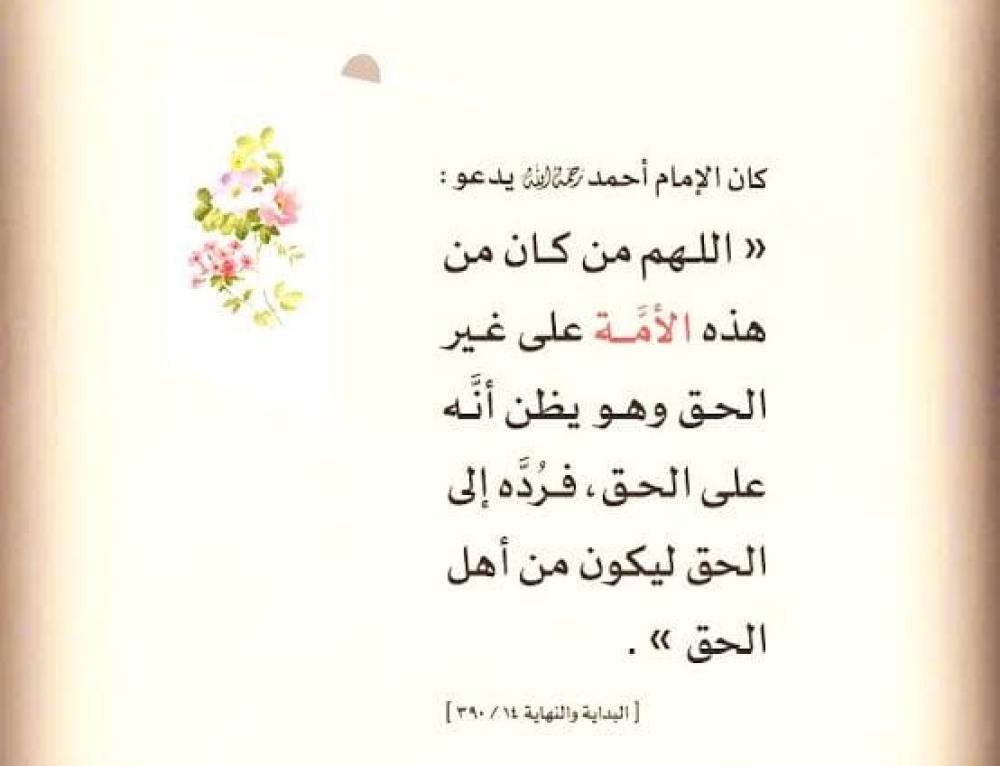 كان الإمام أحمد رحمه الله يدعو :
« اللهم من كان من
هذه الأمَّة على غير
الحق وهو يظن أنَّه
على الحق، فرُدَّه إلى
الحق ليكون من أهل
الحق » .
[ البداية والنهاية ١٤ / ٣٩٠ ]